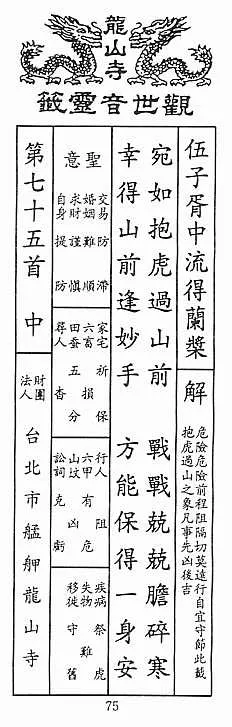 龍山寺
觀世音靈籤
伍子胥中流得蘭槳
解
危險危險前程阻隔切莫遠行自宜守節此載
抱虎過山之象凡事先凶後吉
宛如抱虎過山前 戰戰兢兢膽碎寒
幸得山前逢妙手 方能保得一身安
聖意
交易防滯
婚姻難順
求財謹慎
自身提防
家宅祈保
六畜損
田蚕五分
尋人杳
行人阻
六甲有危
山坟凶
訟詞克虧
疾病祭虎
失物難
移徙守舊
第七十五首 中
財團法人
台北市艋舺龍山寺
75